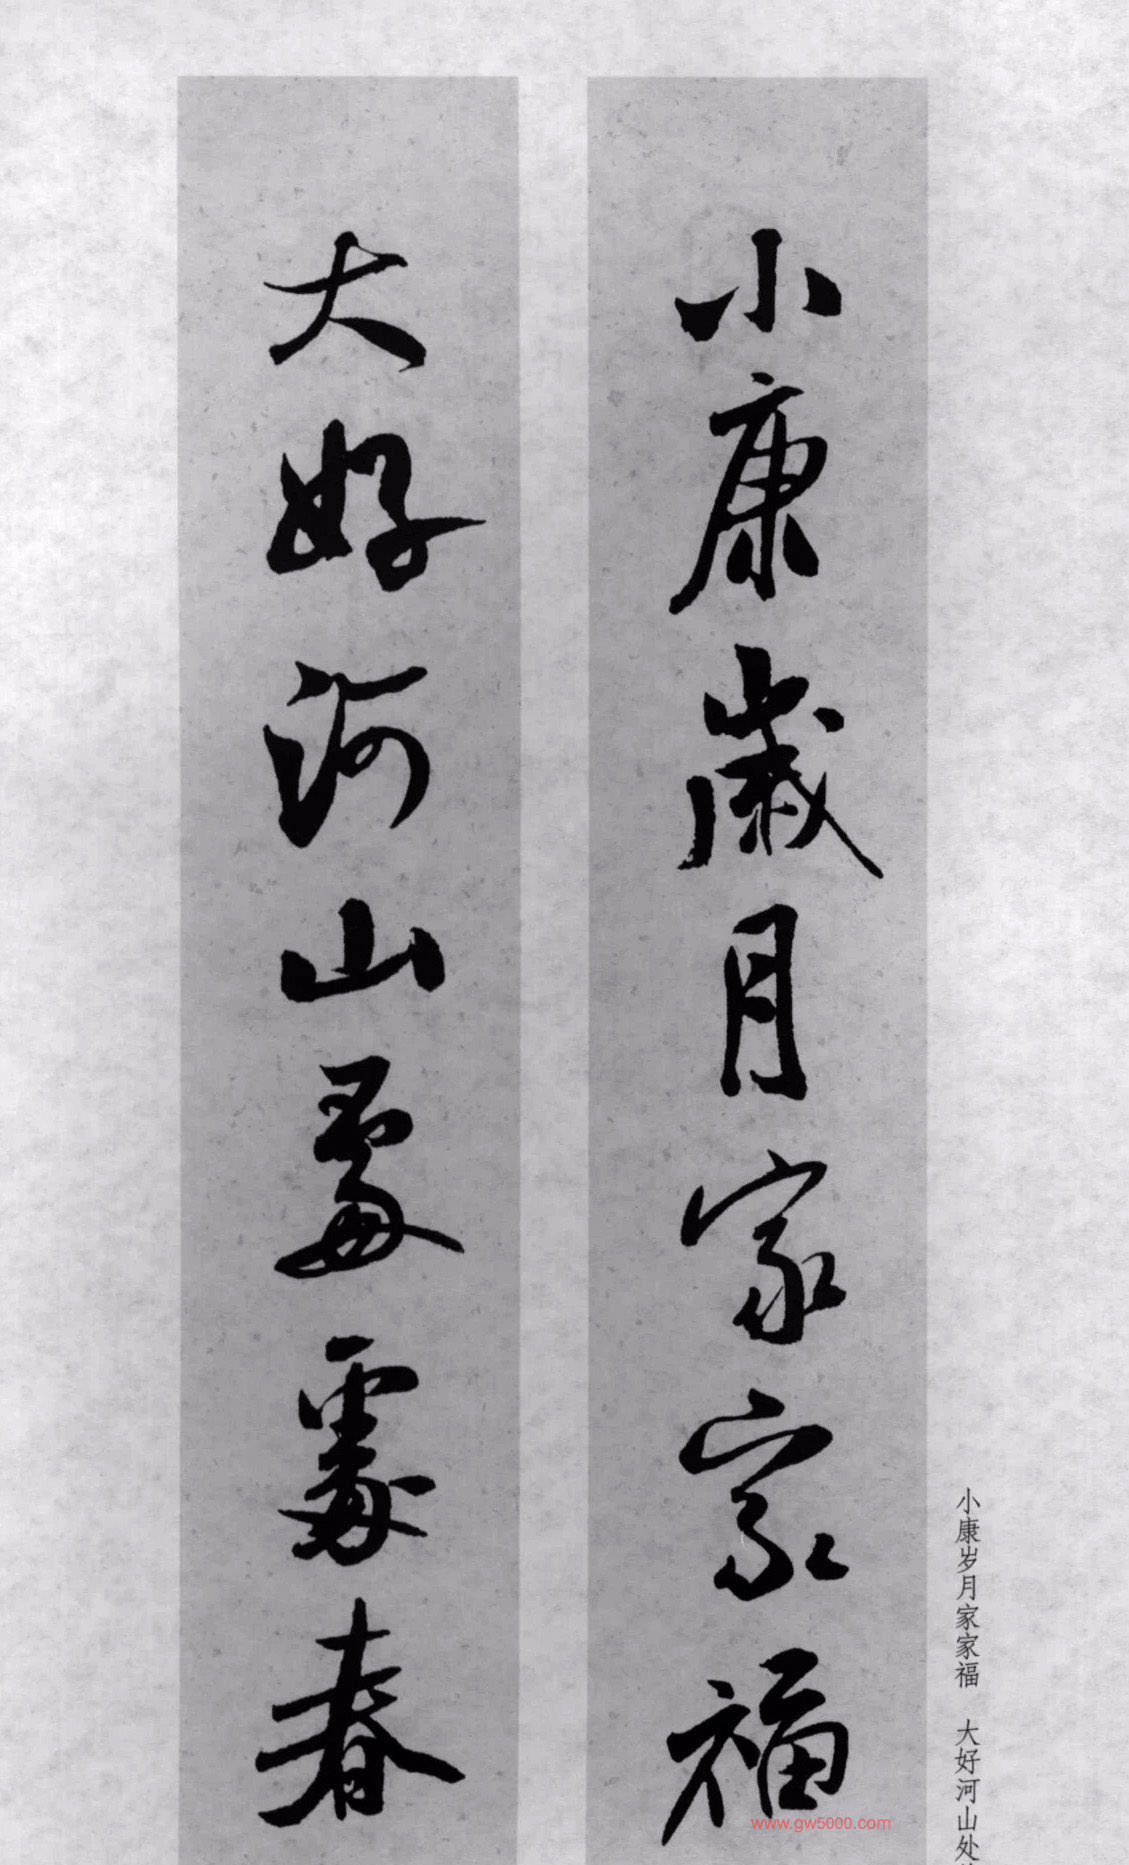 小康歲月家家福
大好河山處處春
小康岁月家家福 大好河山处
www.gw5000.com